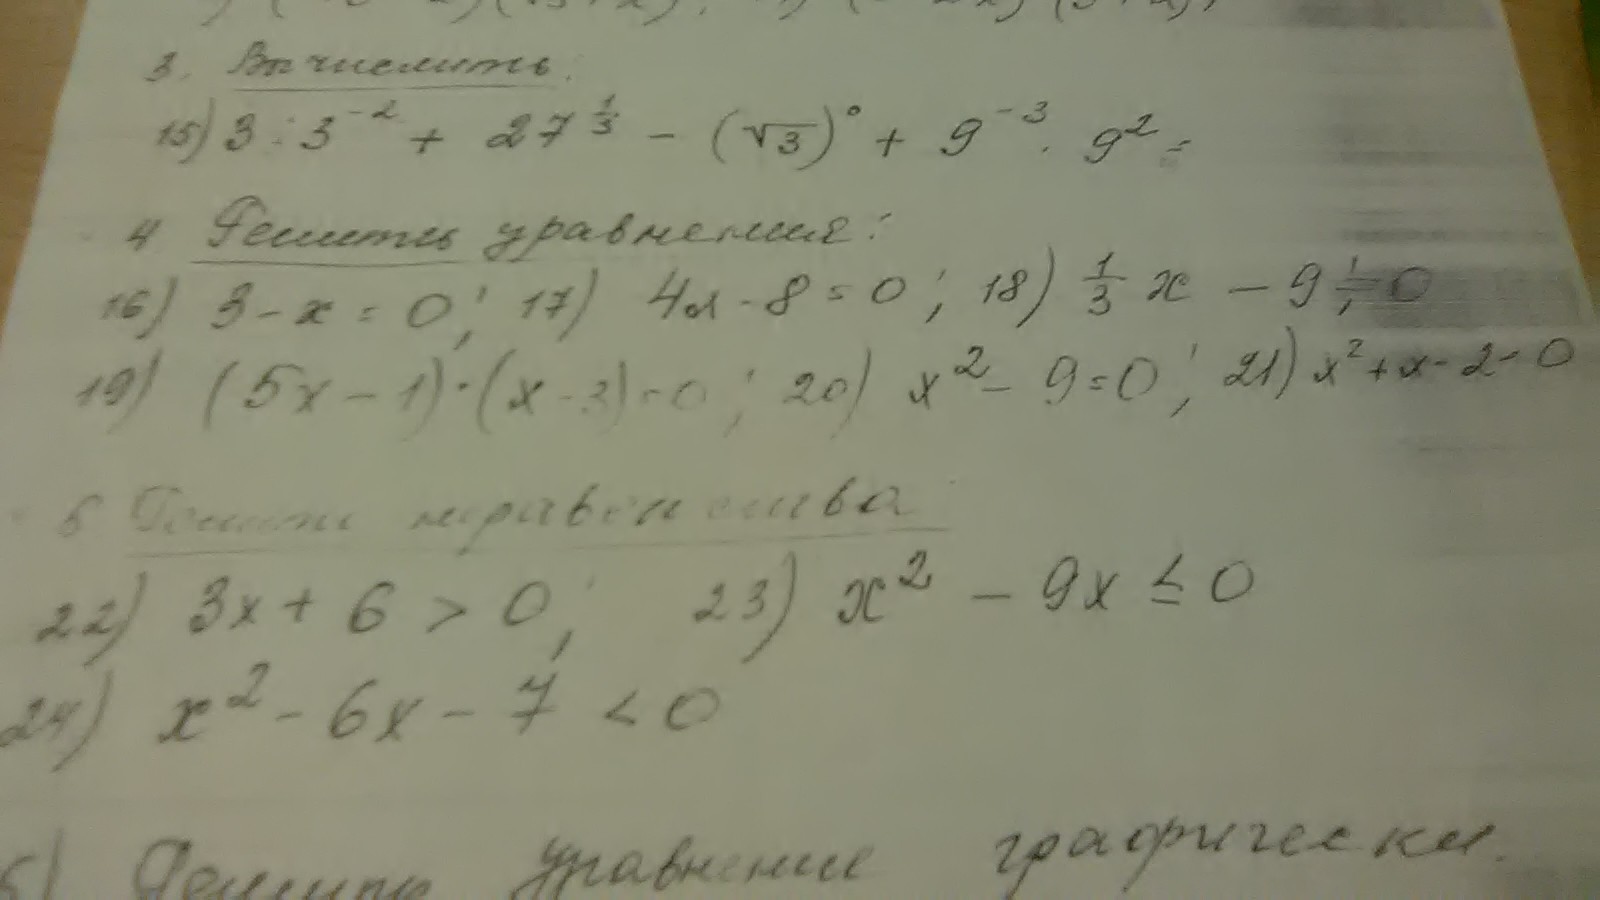 3. Вычислить:
15) 3 : 3^-2 + 27^1/3 - (√3)^0 + 9^-3 · 9^2 =
4 Решить уравнения:
16) 3 - x = 0; 17) 4x - 8 = 0; 18) 1/3 x - 9 = 0;
19) (5x - 1) · (x - 3) = 0; 20) x^2 - 9 = 0; 21) x^2 + x - 2 = 0
5 Решить неравенства
22) 3x + 6 > 0; 23) x^2 - 9x ≤ 0
24) x^2 - 6x - 7 < 0
Решить уравнение графически.